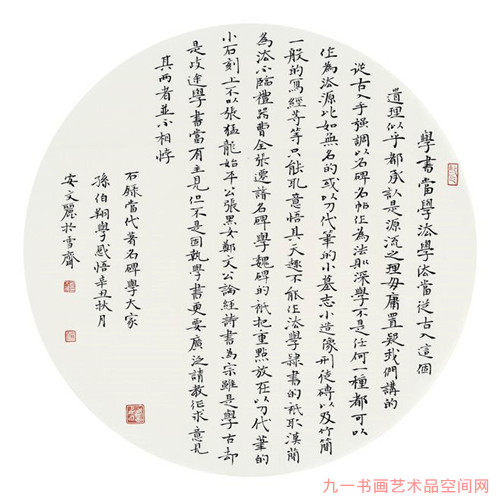 學書當學法學法當從古入這個
道理似乎都承認是源流之理毋庸置疑我們講的
從古入手強調以名碑名帖作為法則深學不是任何一種都可以
作為法源比如無名的或以刀代筆的小墓志小造像刑徒磚以及竹簡
一般的寫經等等只能取意悟其天趣不能作法學隸書的祇取漢簡
為法不臨禮器曹全張遷諸名碑學魏碑的祇把重點放在以刀代筆的
小石刻上不以張猛龍始平公張黑女鄭文公論經詩書為宗雖是學古却
是歧途學書當有主見但不是固執學書更要廣泛請教征求意見
其兩者並不相悖
右錄當代著名碑學大家
孫伯翔學感悟辛丑秋月
安文麗於雪齋
九一书画艺术品空间网